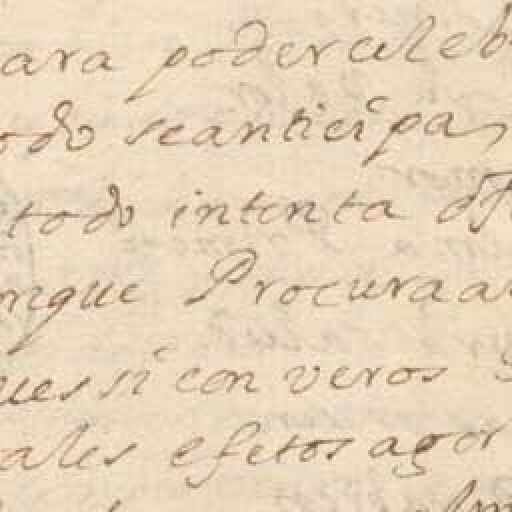 ara poder celeb
odo seanticipa
todo intenta
mque Procuraa
ues si con veros
ales efetos agor